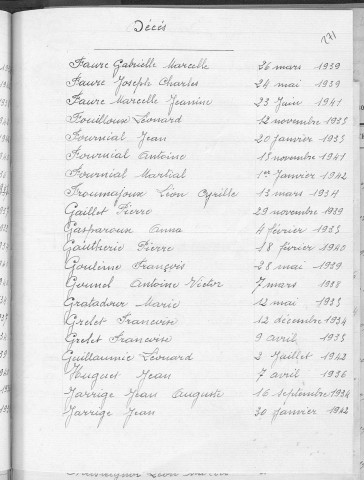 Décés
271
Faure Gabrielle Marcelle 26 mars 1939
Faure Joseph Charles 24 mai 1939
Faure Marcelle Jeanine 23 Juin 1941
Fouilloux Léonard 12 novembre 1935
Fournial Jean 20 Janvier 1935
Fournial Antoine 15 novembre 1941
Fournial Martial 1er Janvier 1942
Froumajoux Léon Cyrille 13 mars 1934
Gaillet Pierre 29 novembre 1939
Gasparoux Anna 4 février 1935
Gautherie Pierre 18 février 1940
Gouleme François 28 mai 1939
Gounel Antoine Victor 7 mars 1938
Gratadour Marie 12 mai 1935
Grelet Francoise 12 décembre 1934
Grelet Francoise 9 avril 1935
Guillaumie Léonard 2 Juillet 1942
Huguet Jean 7 avril 1936
Jarrige Jean Auguste 16 septembre 1934
Jarrige Jean 30 Janvier 1942